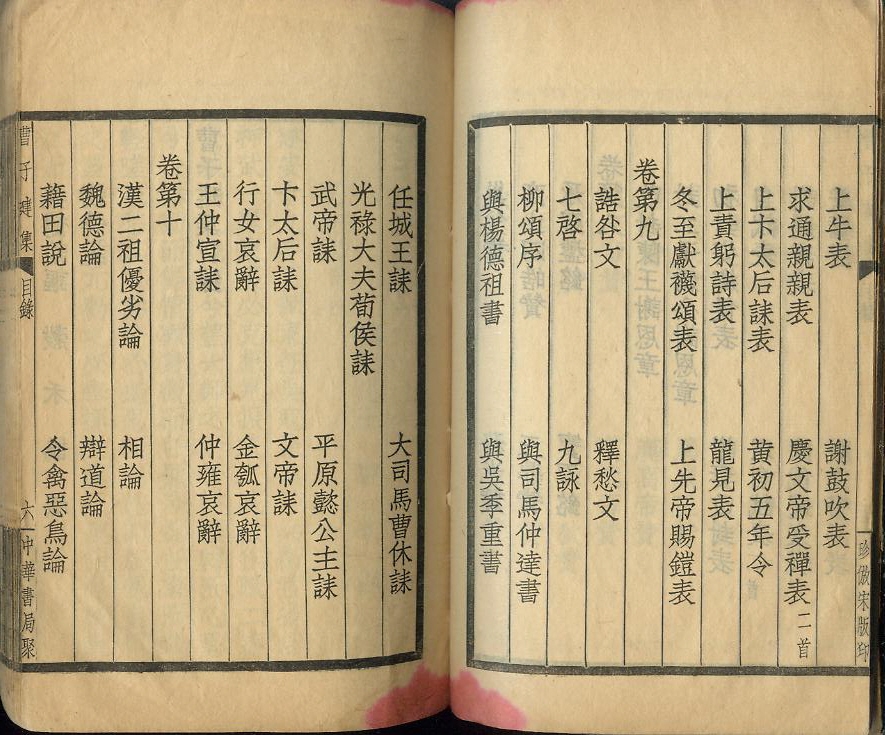 珍倣宋版印
上牛表 謝鼓吹表
求通親親表 慶文帝受禪表二首
上卞太后誄表 黃初五年令
上責躬詩表 龍見表
冬至獻襪頌表 上先帝賜鎧表
卷第九
誥咎文 釋愁文
七啓 九詠
柳頌序 與司馬仲達書
與楊德祖書 與吳季重書
任城王誄 大司馬曹休誄
光祿大夫荀侯誄
武帝誄 平原懿公主誄
卞太后誄 文帝誄
行女哀辭 金瓠哀辭
王仲宣誄 仲雍哀辭
卷第十
漢二祖優劣論 相論
魏德論 辯道論
藉田說 令禽惡鳥論
曹子建集 目錄 六 中華書局聚